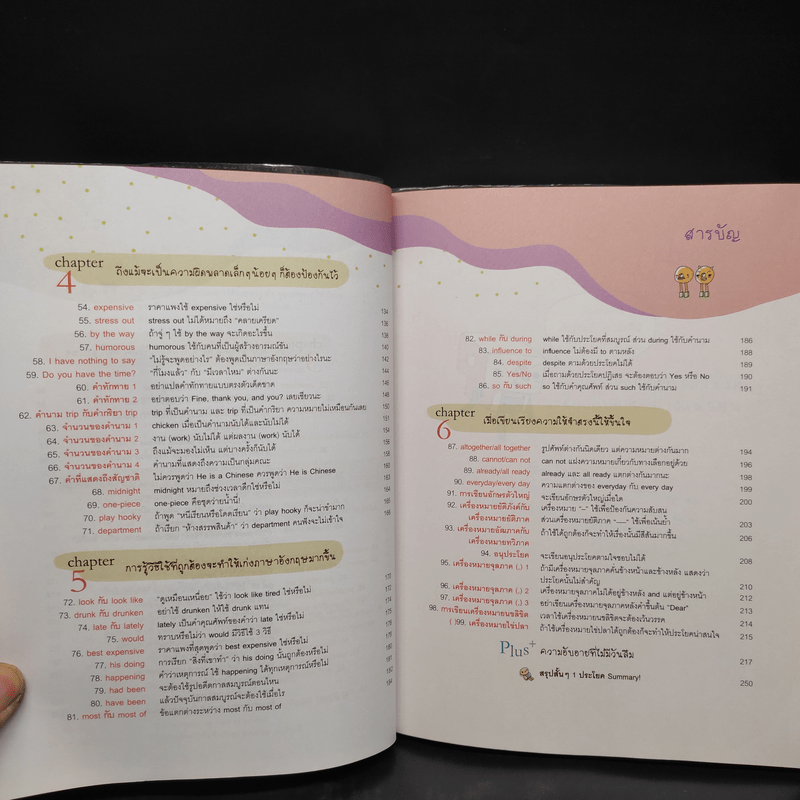 chapter 4 ถึงแม้จะเป็นความผิดพลาดเล็กๆน้อยๆ ก็ต้องป้องกันไว้
54. expensive ราคาแพงใช้ expensive ใช่หรือไม่ 134
55. stress out stress out ไม่ได้หมายถึง "คลายเครียด" 136
56. by the way ถ้าจู่ ๆ ใช้ by the way จะเกิดอะไรขึ้น 138
57. humorous humorous ใช้กับคนที่เป็นผู้สร้างอารมณ์ขัน 140
58. I have nothing to say "ไม่รู้จะพูดอย่างไร" ต้องพูดเป็นภาษาอังกฤษว่าอย่างไรนะ 142
59. Do you have the time? "กี่โมงแล้ว" กับ "มีเวลาไหม" ต่างกันนะ 144
60. คำทักทาย 1 อย่าแปลคำทักทายแบบตรงตัวเด็ดขาด 146
61. คำทักทาย 2 อย่าตอบว่า Fine, thank you, and you? เลยเชียวนะ 148
62. คำนาม trip กับคำกริยา trip trip ที่เป็นคำนาม และ trip ที่เป็นคำกริยา ความหมายไม่เหมือนกันเลย 150
63. จำนวนของคำนาม 1 chicken เมื่อเป็นคำนามนับได้และนับไม่ได้ 151
64. จำนวนของคำนาม 2 งาน (work) นับไม่ได้ แต่ผลงาน (work) นับได้
65. จำนวนของคำนาม 3 ถึงแม้จะมองไม่เห็น แต่บางครั้งก็นับได้
66. จำนวนของคำนาม 4 คำนามที่แสดงถึงความเป็นกลุ่มคณะ
67. คำที่แสดงถึงสัญชาติ ไม่ควรพูดว่า He is a Chinese ควรพูดว่า He is Chinese
68. midnight midnight หมายถึงช่วงเวลาดึกใช่หรือไม่
69. one-piece one-piece คือชุดว่ายน้ำนี่!
70. play hooky ถ้าพูด "หนีเรียนหรือโดดเรียน" ว่า play hooky ก็จะน่าขำมาก
71. department ถ้าเรียก "ห้างสรรพสินค้า" ว่า department คนฟังจะไม่เข้าใจ
chapter 5 การรู้วิธีใช้ที่ถูกต้องจะทำให้เก่งภาษาอังกฤษมากขึ้น
72. look กับ look like "ดูเหมือนเหนื่อย" ใช้ว่า look like tired ใช่หรือไม่ 170
73. drunk กับ drunken อย่าใช้ drunken ให้ใช้ drunk แทน
74. late กับ lately lately เป็นคำคุณศัพท์ของคำว่า late ใช่หรือไม่
75. would ทราบหรือไม่ว่า would มีวิธีใช้ 3 วิธี
76. best expensive ราคาแพงที่สุดพูดว่า best expensive ใช่หรือไม่
77. his doing การเรียก "สิ่งที่เขาทำ" ว่า his doing นั้นถูกต้องหรือไม่
78. happening คำว่าเหตุการณ์ ใช้ happening ได้ทุกเหตุการณ์หรือไม่
79. had been จะต้องใช้รูปอดีตกาลสมบูรณ์ตอนไหน
80. have been แล้วปัจจุบันกาลสมบูรณ์จะต้องใช้เมื่อไร
81. most กับ most of ข้อแตกต่างระหว่าง most กับ most of
สารบัญ
82. while กับ during while ใช้กับประโยคที่สมบูรณ์ ส่วน during ใช้กับคำนาม 186
83. influence to influence ไม่ต้องมี to ตามหลัง 188
84. despite despite ตามด้วยประโยคไม่ได้ 189
85. Yes/No เมื่อถามด้วยประโยคปฏิเสธ จะต้องตอบว่า Yes หรือ No 190
86. so กับ such so ใช้กับคำคุณศัพท์ ส่วน such ใช้กับคำนาม 191
chapter 6 เมื่อเขียนเรียงความให้จำตรงนี้ให้ขึ้นใจ
87. altogether/all together รูปศัพท์ต่างกันนิดเดียว แต่ความหมายต่างกันมาก 194
88. cannot/can not can not แฝงความหมายเกี่ยวกับทางเลือกอยู่ด้วย 196
89. already/all ready already และ all ready แตกต่างกันมากนะ 198
90. everyday/every day ความแตกต่างของ everyday กับ every day 199
91. การเขียนอักษรตัวใหญ่ จะเขียนอักษรตัวใหญ่เมื่อใด 200
92. เครื่องหมายยัติภังค์กับเครื่องหมายยัติภาค เครื่องหมาย "-" ใช้เพื่อป้องกันความสับสน
ส่วนเครื่องหมายยัติภาค "—" ใช้เพื่อเน้นย้ำ 203
93. เครื่องหมายอัฒภาคกับเครื่องหมายทวิภาค ถ้าใช้ได้ถูกต้องก็จะทำให้เรื่องนั้นมีสีสันมากขึ้น 206
94. อนุประโยค จะเขียนอนุประโยคตามใจชอบไม่ได้ 208
95. เครื่องหมายจุลภาค (,) 1 ถ้ามีเครื่องหมายจุลภาคคั่นข้างหน้าและข้างหลัง แสดงว่า
ประโยคนั้นไม่สำคัญ 210
96. เครื่องหมายจุลภาค (,) 2 เครื่องหมายจุลภาคไม่ได้อยู่ข้างหลัง and แต่อยู่ข้างหน้า 212
97. เครื่องหมายจุลภาค (,) 3 อย่าเขียนเครื่องหมายจุลภาคหลังคำขึ้นต้น "Dear" 213
98. การเขียนเครื่องหมายนขลิขิต เวลาใช้เครื่องหมายนขลิขิตจะต้องเว้นวรรค 214
( )99. เครื่องหมายไข่ปลา ถ้าใช้เครื่องหมายไข่ปลาได้ถูกต้องก็จะทำให้ประโยคน่าสนใจ 215
Plus+ ความอับอายที่ไม่มีวันลืม 217
สรุปสั้นๆ 1 ประโยค Summary! 250